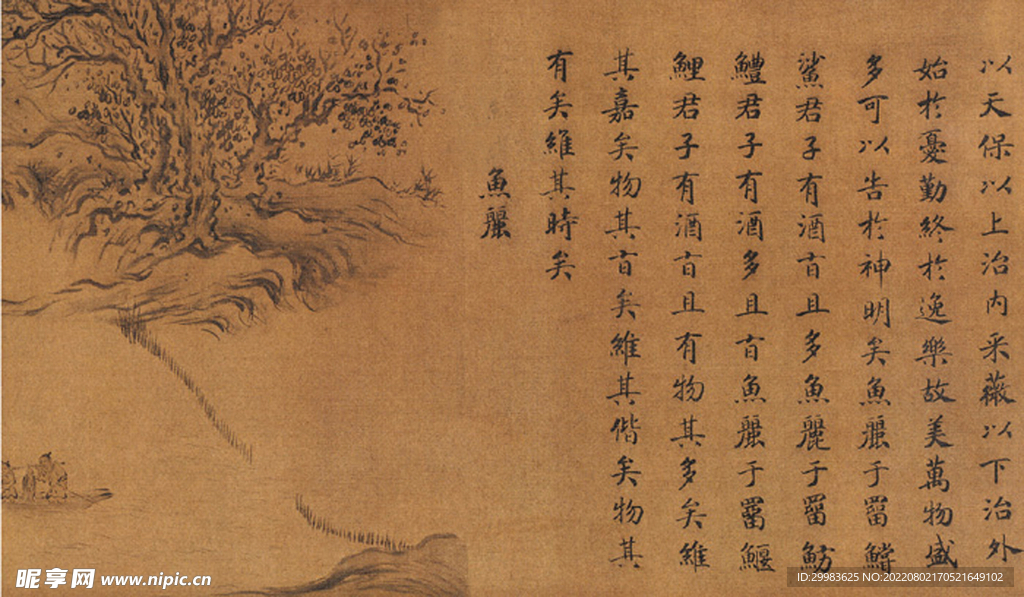 以天保以上治内采薇以下治外
始於憂勤終於逸樂故美萬物盛
多可以告於神明矣魚麗于罶鱨
鯊君子有酒旨且多魚麗于罶魴
鱧君子有酒多且旨魚麗于罶鰋
鯉君子有酒旨且有物其多矣維
其嘉矣物其旨矣維其偕矣物其
有矣維其時矣
魚麗
昵享网 www.nipic.cn
ID:29983625 NO:20220802170521649102